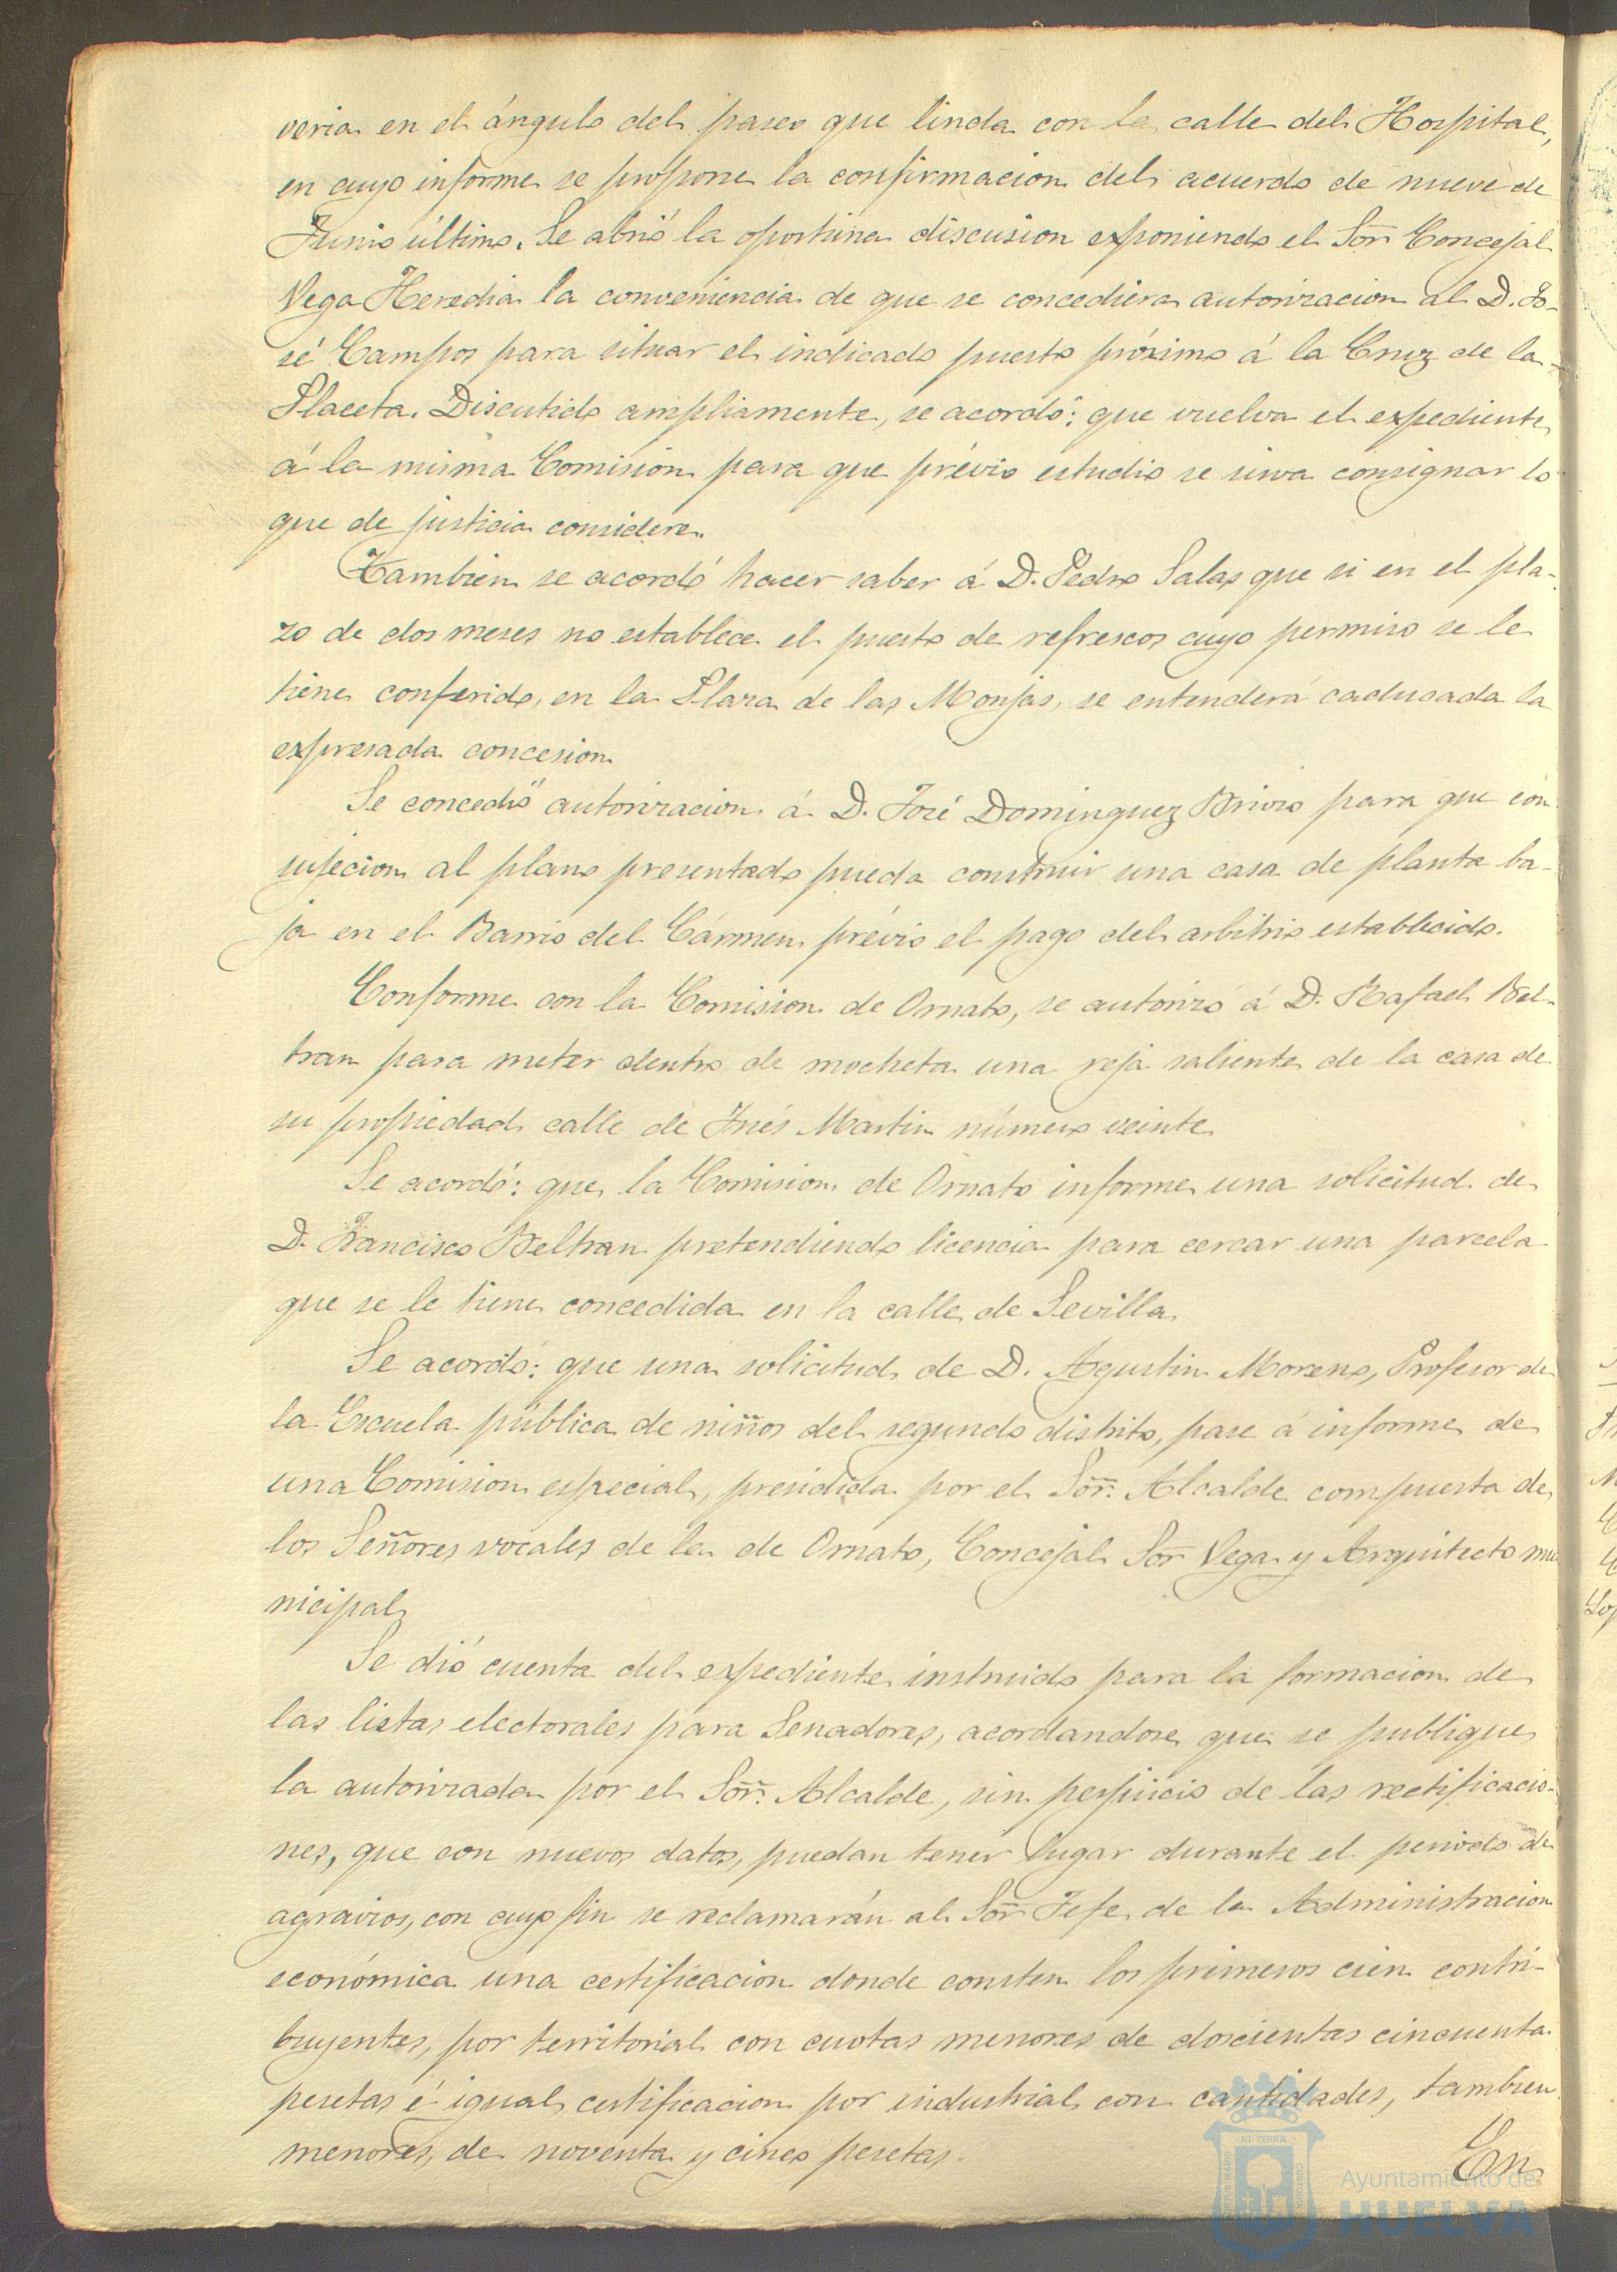 veria en el ángulo del paseo que linda con la calle del Hospital,
en cuyo informe se propone la confirmacion del acuerdo de nueve de
Junio último. Se abrió la oportuna discusion exponiendo el Sor. Concejal
Vega Heredia la conveniencia de que se concediera autorizacion al D. Jo-
sé Campos para situar el indicado puesto próximo á la Cruz de la
Placeta. Discutido ampliamente, se acordó: que vuelva el expediente
á la misma Comision para que prévio estudio se sirva consignar lo
que de justicia considere.
Tambien se acordó hacer saber á D. Pedro Salas que si en el pla-
zo de dos meses no establece el puesto de refrescos cuyo permiso se le
tiene conferido, en la Plaza de las Monjas, se entenderá caducada la
expresada concesion.
Se concedió autorizacion á D. José Dominguez Brioso para que con
sujecion al plano presentado pueda construir una casa de planta ba-
ja en el Barrio del Cármen prévio el pago del arbitrio establecido.
Conforme con la Comision de Ornato, se autorizó á D. Rafael Bel-
tran para meter dentro de mocheta una reja saliente de la casa de
su propiedad calle de Inés Martin número veinte.
Se acordó: que la Comision de Ornato informe una solicitud de
D. Francisco Beltran pretendiendo licencia para cercar una parcela
que se le tiene concedida en la calle de Sevilla.
Se acordó: que una solicitud de D. Agustin Moreno, Profesor de
la Escuela pública de niños del segundo distrito, pase á informe de
una Comision especial, presidida por el Sor. Alcalde compuesta de
los Señores vocales de la de Ornato, Concejal Sor Vega y Arquitecto mu
nicipal.
Se dió cuenta del expediente instruido para la formacion de
las listas electorales para Senadores, acordandose que se publique
la autorizada por el Sor. Alcalde, sin perjuicio de las rectificacio-
nes, que con nuevos datos, puedan tener lugar durante el periodo de
agravios, con cuyo fin se reclamarán al Sor Jefe de la Administracion
económica una certificacion donde consten los primeros cien contri-
buyentes, por territorial con cuotas menores de doscientas cincuenta
pesetas é igual certificacion por industrial con cantidades, tambien
menores, de noventa y cinco pesetas.
En
Ayuntamiento de
HUELVA